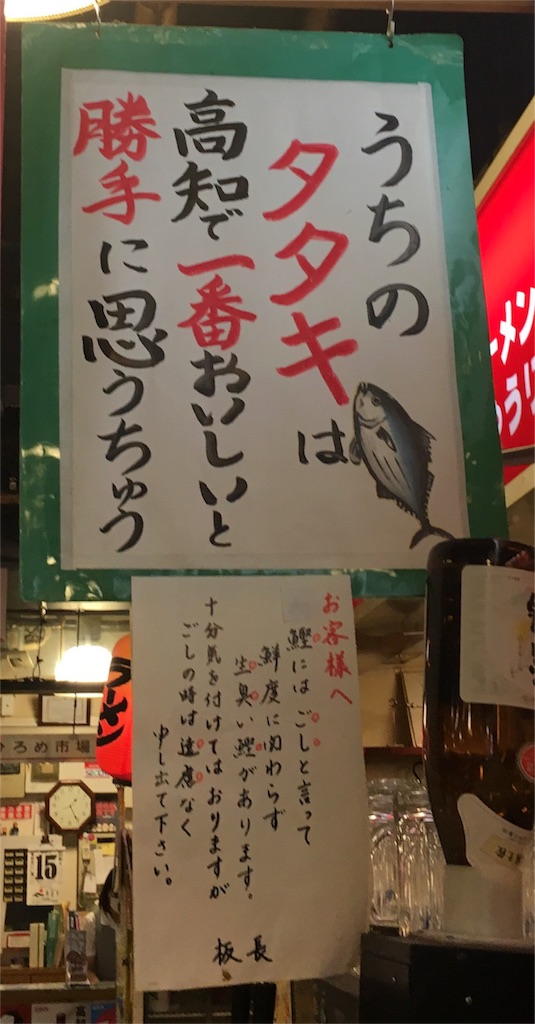 うちの
タタキは
高知で一番おいしいと
勝手に思うちゅう
お客様へ
鰹にはごしと言って
鮮度に関わらず
生臭い鰹があります。
十分気を付けてはおりますが
ごしの時は遠慮なく
申し出て下さい。
板長
ラーメン
ひろめ市場
15